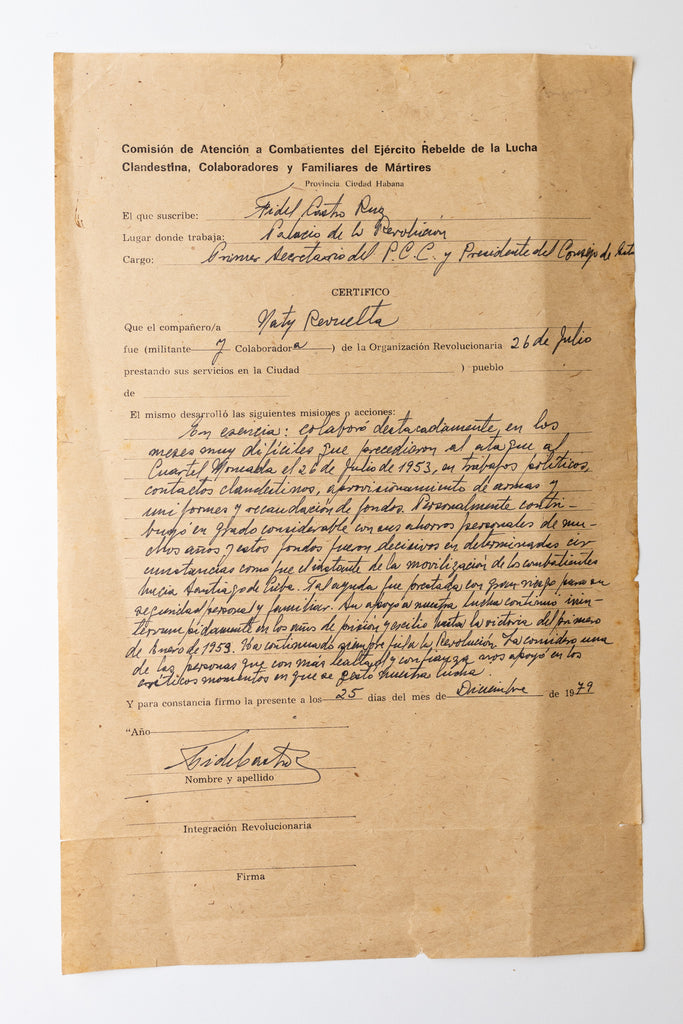 Comisión de Atención a Combatientes del Ejército Rebelde de la Lucha
Clandestina, Colaboradores y Familiares de Mártires
Provincia Ciudad Habana
El que suscribe: Fidel Castro Ruz
Lugar donde trabaja: Palacio de la Revolución
Cargo: Primer Secretario del P.C.C. y Presidente del Consejo de
CERTIFICO
Que el compañero/a Naty Revuelta
fue (militante y Colaboradora) de la Organización Revolucionaria 26 de Julio
prestando sus servicios en la Ciudad ) pueblo
de
El mismo desarrolló las siguientes misiones o acciones:
En esencia: colaboró destacadamente, en los
meses muy difíciles que precedieron al ataque al
Cuartel Moncada el 26 de Julio de 1953, en trabajos políticos,
contactos clandestinos, aprovisionamiento de armas y
uniformes y recaudación de fondos. Personalmente contri-
buyó en grado considerable con sus ahorros personales de mu-
chos años y estos fondos fueron decisivos en determinadas cir
cunstancias como fue el instante de la movilización de los combatientes
hacia Santiago de Cuba. Tal ayuda fue prestada con gran riesgo para su
seguridad personal y familiar. Su apoyo a nuestra lucha continuó inin-
terrumpidamente en los años de prisión y exilio hasta la victoria del primero
de Enero de 1959. Ha continuado siempre fiel a la Revolución. La considero una
de las personas que con más lealtad y confianza nos apoyó en los
críticos momentos en que se gestó nuestra lucha.
Y para constancia firmo la presente a los 25 días del mes de Diciembre de 1979
"Año
Fidel Castro
Nombre y apellido
Integración Revolucionaria
Firma